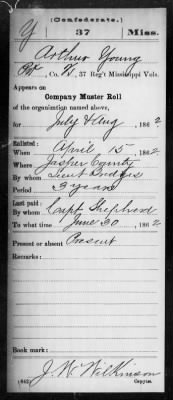 (Confederate.)
Y 37 Miss.
Arthur Young
Pvt, Co. K, 37 Reg't Mississippi Vols.
Appears on
Company Muster Roll
of the organization named above,
for July & Aug, 1862
Enlisted:
When April 15, 1862
Where Jasper County
By whom Lieut Bridges
Period 3 years
Last paid:
By whom Capt Shepherd
To what time June 30, 1862
Present or absent Present
Remarks:
Book mark:
J. W. Wilkinson
(642) Copyist.